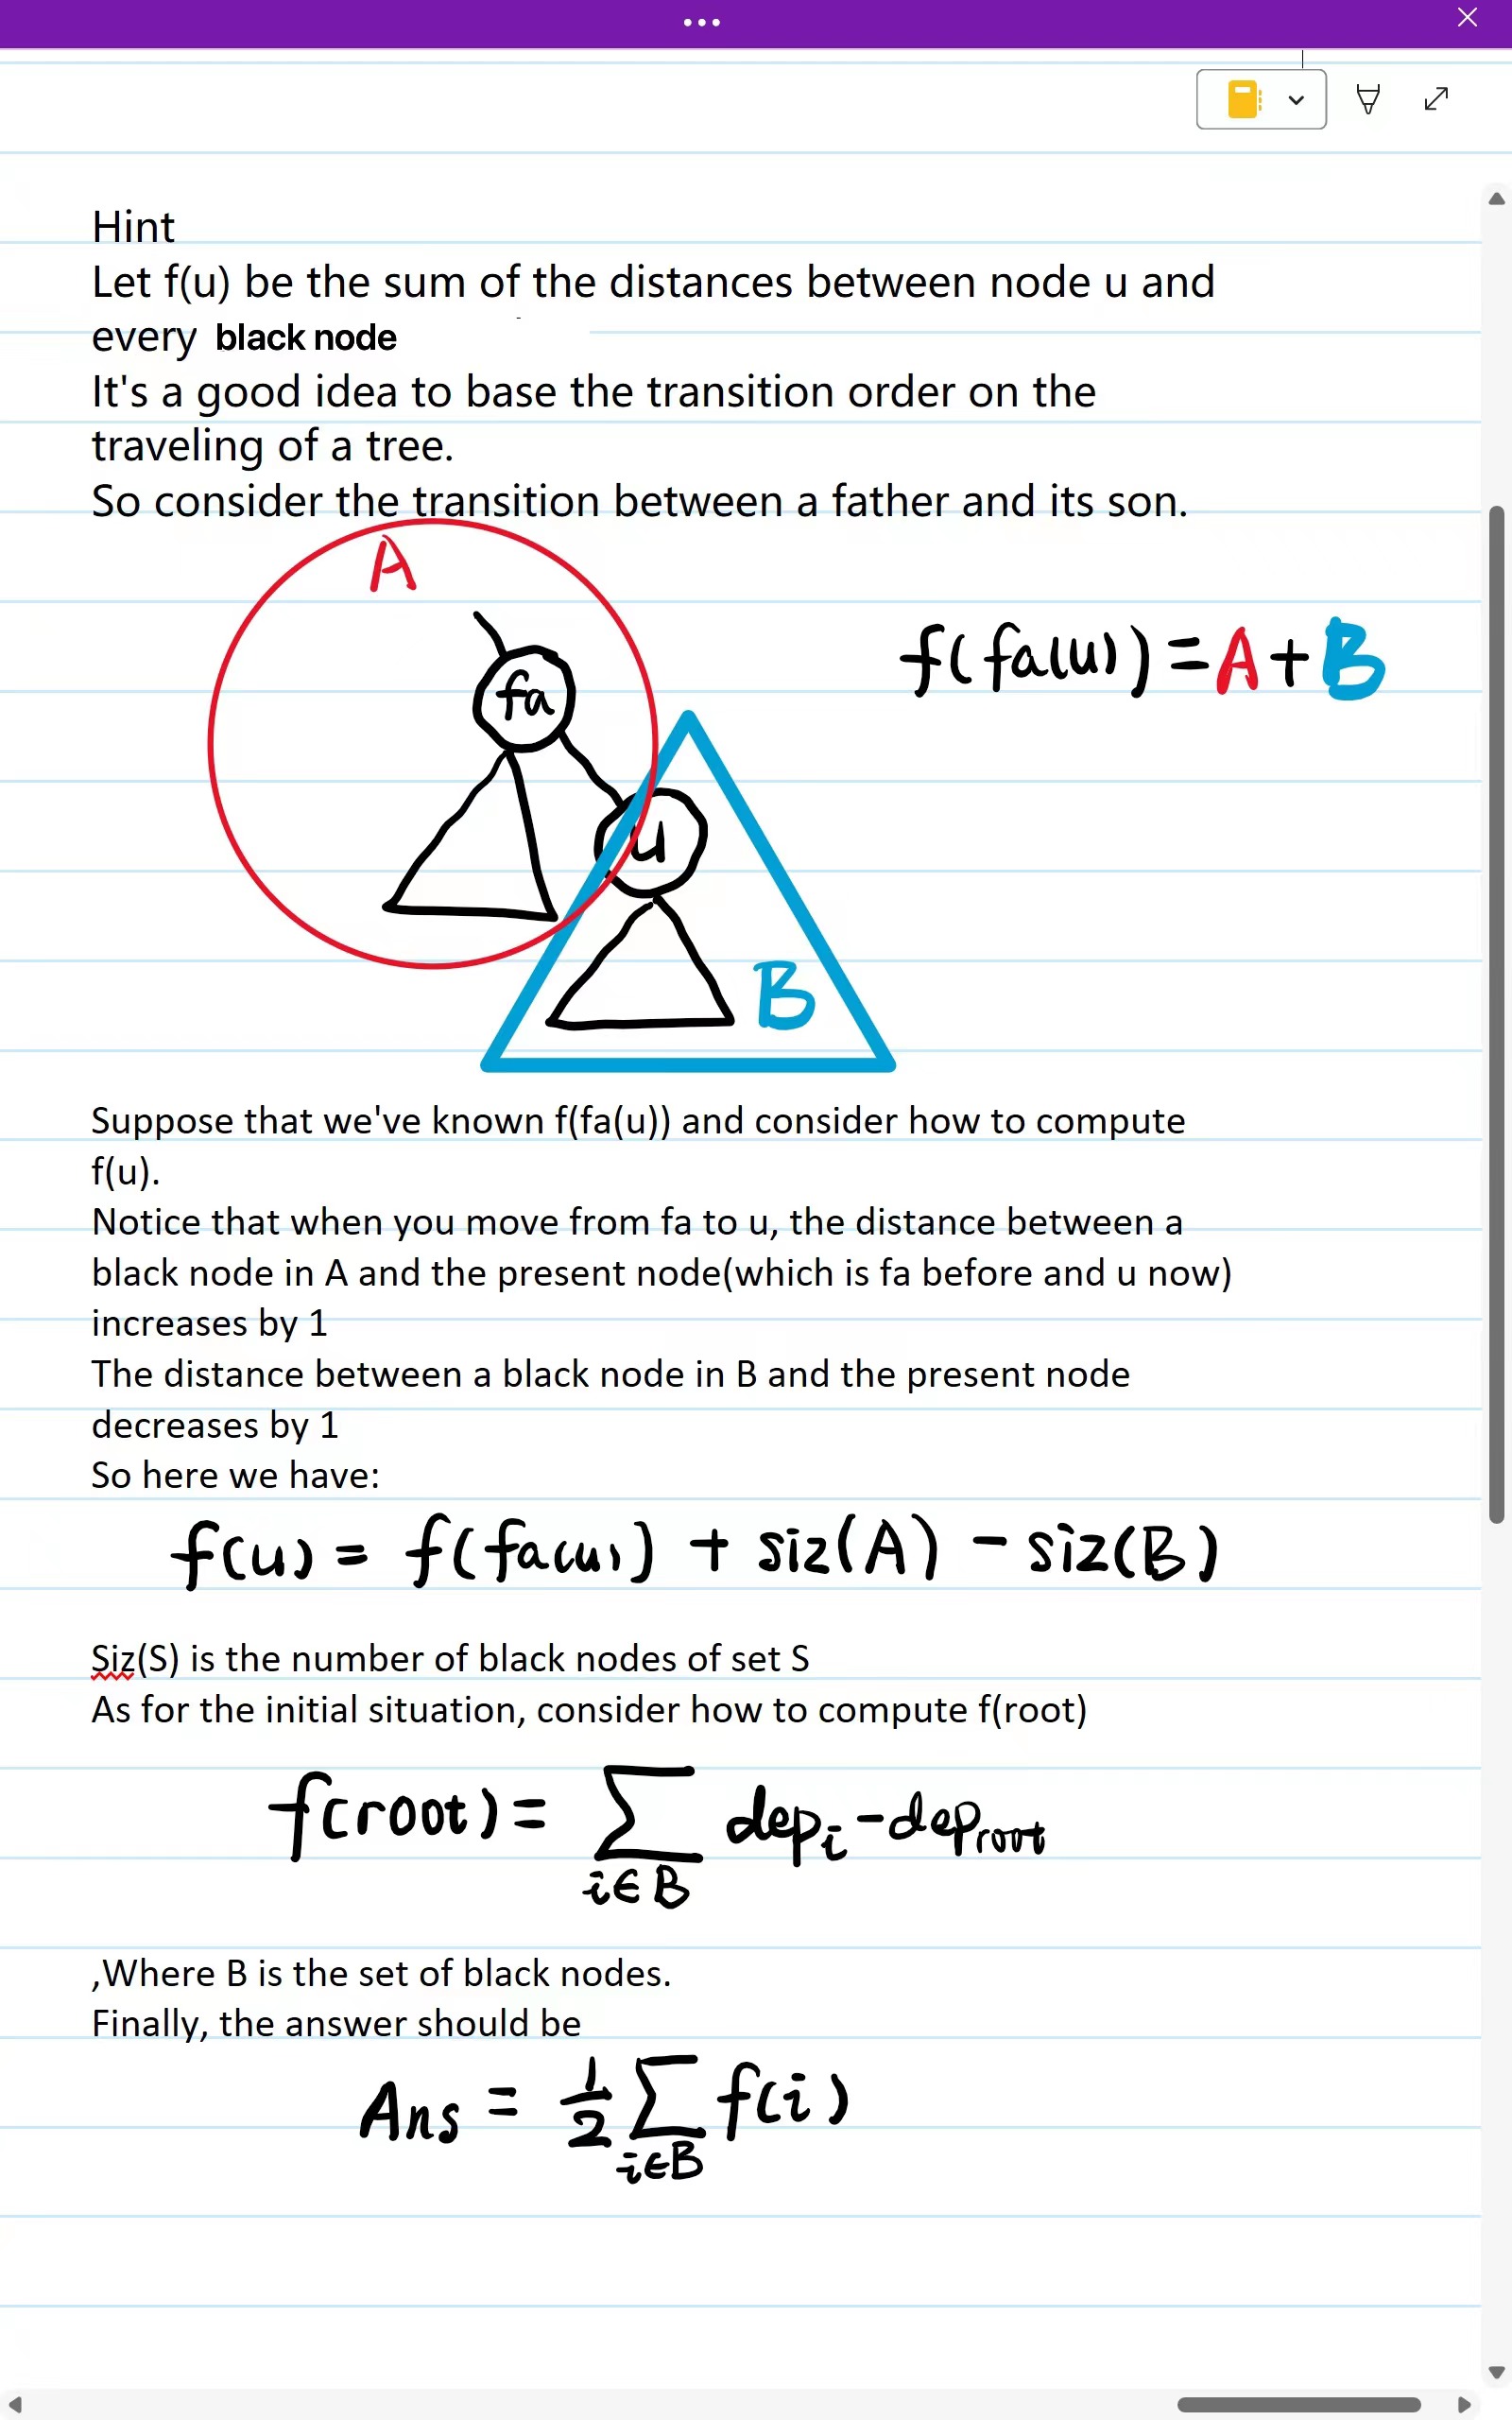 Hint
Let f(u) be the sum of the distances between node u and
every black node
It's a good idea to base the transition order on the
traveling of a tree.
So consider the transition between a father and its son.
A
fa
f(fa(u))=A+B
u
B
Suppose that we've known f(fa(u)) and consider how to compute
f(u).
Notice that when you move from fa to u, the distance between a
black node in A and the present node(which is fa before and u now)
increases by 1
The distance between a black node in B and the present node
decreases by 1
So here we have:
f(u) = f(fa(u)) + siz(A) - siz(B)
Siz(S) is the number of black nodes of set S
As for the initial situation, consider how to compute f(root)
f(root) = ∑ dep_i - dep_root
i∈B
,Where B is the set of black nodes.
Finally, the answer should be
Ans = 1/2 ∑ f(i)
i∈B